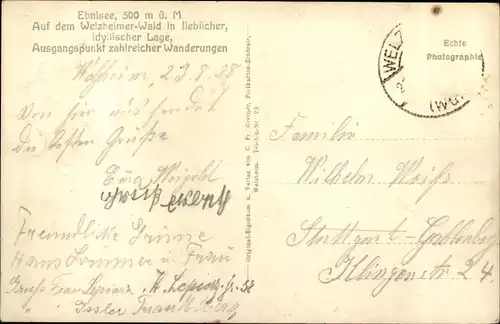 Ebnisee, 500 m ü. M
Auf dem Welzheimer-Wald in lieblicher,
idyllischer Lage,
Ausgangspunkt zahlreicher Wanderungen
Welzheim, 23.8.28
Von hier aus sendet
die besten Grüße
Weigold
Freundliche Grüsse
Hans Sommer u Frau
Gruss Frau
Frau
Original-Eigentum u. Verlag von C. Fr. Greiner, Postkarten-Zentrale,
Welzheim. Telefon-Nr. 29
WELZ
(Wü
Echte
Photographie
Familie
Wilhelm Weiß
Stuttgart-Gablenberg
Klingenstr 24.